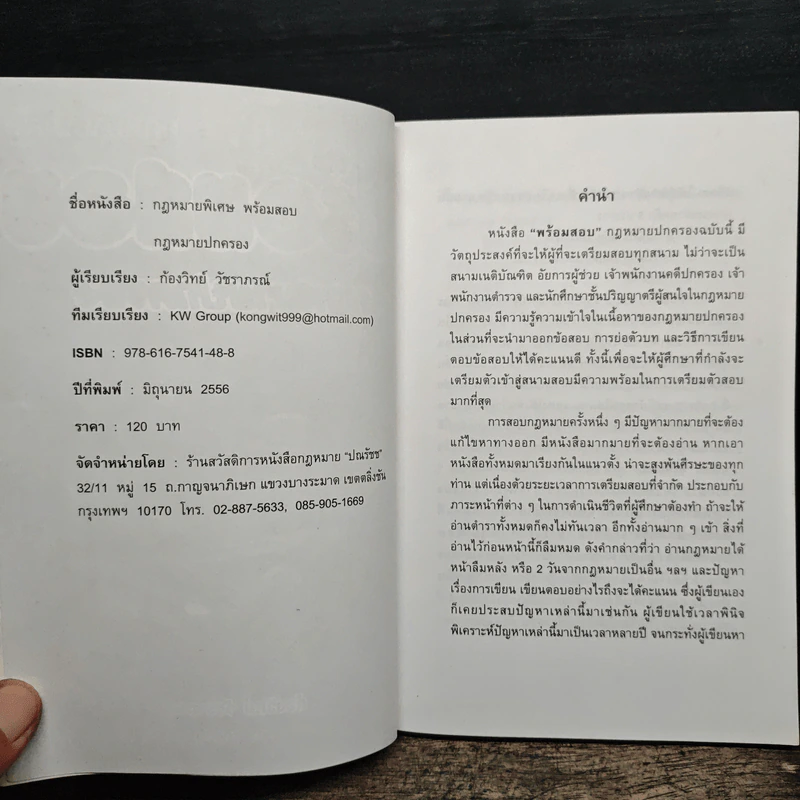 ชื่อหนังสือ : กฎหมายพิเศษ พร้อมสอบ
กฎหมายปกครอง
ผู้เรียบเรียง : ก้องวิทย์ วัชราภรณ์
ทีมเรียบเรียง : KW Group (kongwit999@hotmail.com)
ISBN : 978-616-7541-48-8
ปีที่พิมพ์ : มิถุนายน 2556
ราคา : 120 บาท
จัดจำหน่ายโดย : ร้านสวัสดิการหนังสือกฎหมาย "ปณรัชช"
32/11 หมู่ 15 ถ.กาญจนาภิเษก แขวงบางระมาด เขตตลิ่งชัน
กรุงเทพฯ 10170 โทร. 02-887-5633, 085-905-1669
คำนำ
หนังสือ "พร้อมสอบ" กฎหมายปกครองฉบับนี้ มี
วัตถุประสงค์ที่จะให้ผู้ที่จะเตรียมสอบทุกสนาม ไม่ว่าจะเป็น
สนามเนติบัณฑิต อัยการผู้ช่วย เจ้าพนักงานคดีปกครอง เจ้า
พนักงานตำรวจ และนักศึกษาชั้นปริญญาตรีผู้สนใจในกฎหมาย
ปกครอง มีความรู้ความเข้าใจในเนื้อหาของกฎหมายปกครอง
ในส่วนที่จะนำมาออกข้อสอบ การย่อตัวบท และวิธีการเขียน
ตอบข้อสอบให้ได้คะแนนดี ทั้งนี้เพื่อจะให้ผู้ศึกษาที่กำลังจะ
เตรียมตัวเข้าสู่สนามสอบมีความพร้อมในการเตรียมตัวสอบ
มากที่สุด
การสอบกฎหมายครั้งหนึ่ง ๆ มีปัญหามากมายที่จะต้อง
แก้ไขหาทางออก มีหนังสือมากมายที่จะต้องอ่าน หากเอา
หนังสือทั้งหมดมาเรียงกันในแนวตั้ง น่าจะสูงพ้นศีรษะของทุก
ท่าน แต่เนื่องด้วยระยะเวลาการเตรียมสอบที่จำกัด ประกอบกับ
ภาระหน้าที่ต่าง ๆ ในการดำเนินชีวิตที่ผู้ศึกษาต้องทำ ถ้าจะให้
อ่านตำราทั้งหมดก็คงไม่ทันเวลา อีกทั้งอ่านมาก ๆ เข้า สิ่งที่
อ่านไว้ก่อนหน้านี้ก็ลืมหมด ดังคำกล่าวที่ว่า อ่านกฎหมายได้
หน้าลืมหลัง หรือ 2 วันจากกฎหมายเป็นอื่น ฯลฯ และปัญหา
เรื่องการเขียน เขียนตอบอย่างไรถึงจะได้คะแนน ซึ่งผู้เขียนเอง
ก็เคยประสบปัญหาเหล่านี้มาเช่นกัน ผู้เขียนใช้เวลาพินิจ
พิเคราะห์ปัญหาเหล่านี้มาเป็นเวลาหลายปี จนกระทั่งผู้เขียนหา